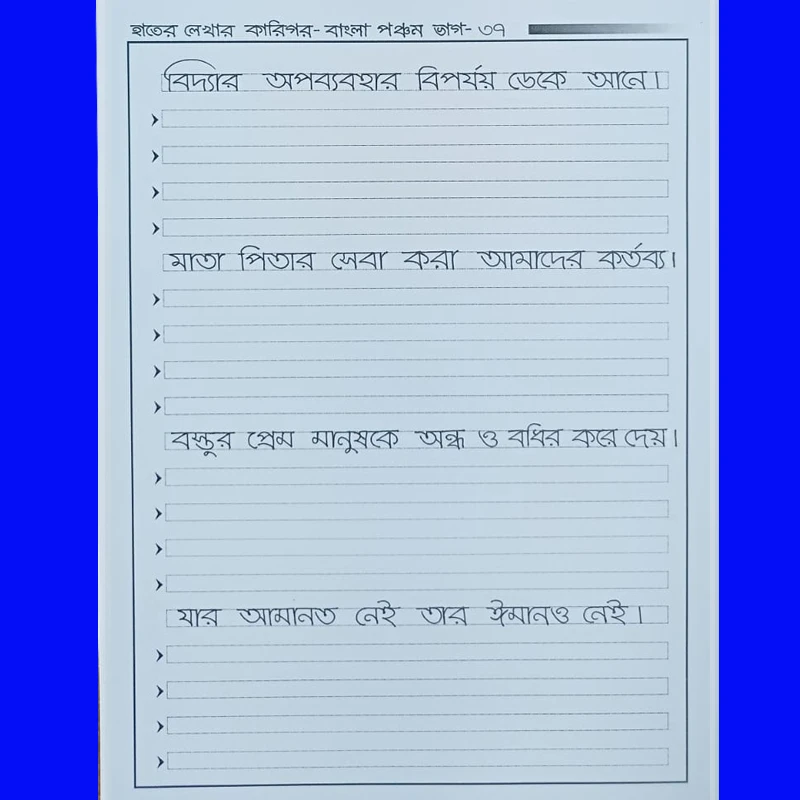 হাতের লেখার কারিগর- বাংলা পঞ্চম ভাগ- ৩৭
বিদ্যার অপব্যবহার বিপর্যয় ডেকে আনে।
মাতা পিতার সেবা করা আমাদের কর্তব্য।
বস্তুর প্রেম মানুষকে অন্ধ ও বধির করে দেয়।
যার আমানত নেই তার ঈমানও নেই।